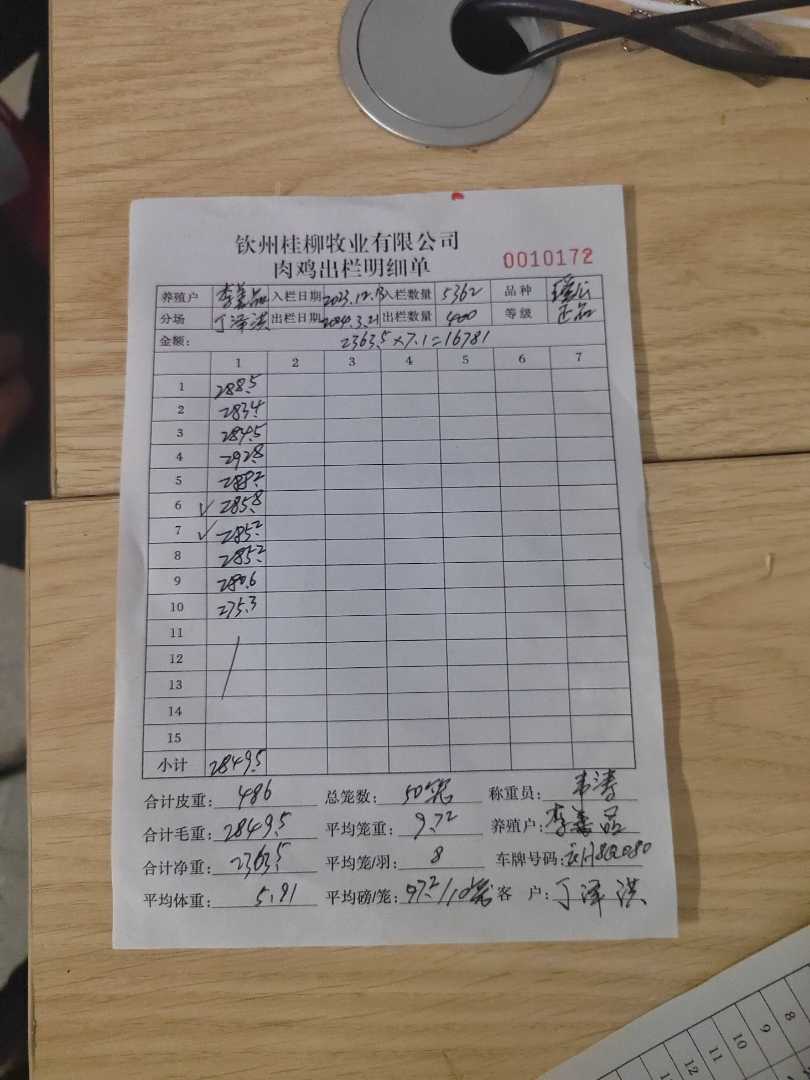 钦州桂柳牧业有限公司
肉鸡出栏明细单 0010172
养殖户 李善品 入栏日期 2023.12.13 入栏数量 5362 品种 瑶公
分场 丁泽洪 出栏日期 2024.3.21 出栏数量 400 等级 正品
金额: 2363.5×7.1=16781
1 2 3 4 5 6 7
1 288.5
2 283.4
3 284.5
4 292.8
5 288.2
6 ✓ 285.8
7 ✓ 285.2
8 285.2
9 280.6
10 275.3
11
12
13
14
15
小计 2849.5
合计皮重: 486 总笼数: 50笼 称重员: 韦涛
合计毛重: 2849.5 平均笼重: 9.72 养殖户: 李善品
合计净重: 2363.5 平均笼/羽: 8 车牌号码:
平均体重: 5.91 平均磅/笼: 97.2/10笼 客 户: 丁泽洪
7
8
9
10
11
12